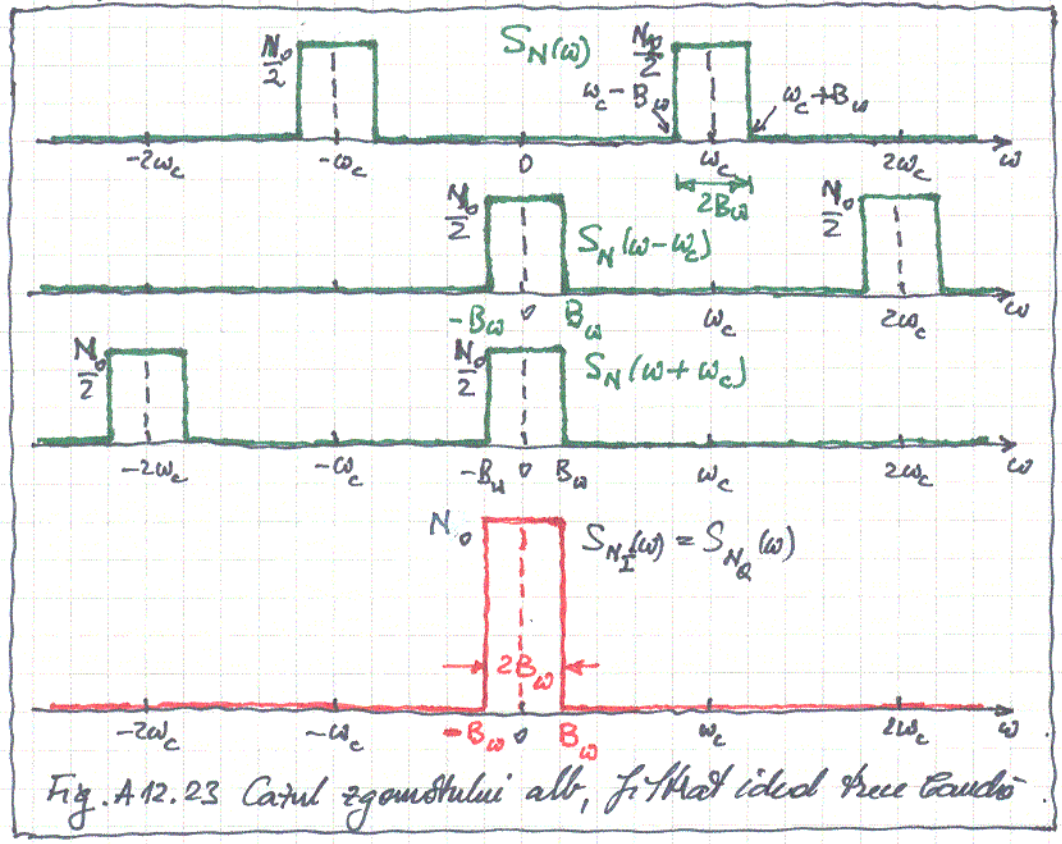 N₀/2 S_N(ω) N₀/2
ω_c − B_ω ω_c + B_ω
−2ω_c −ω_c 0 ω_c 2ω_c ω
2B_ω
N₀/2 N₀/2
S_N(ω−ω_c)
−B_ω 0 B_ω ω_c 2ω_c ω
N₀/2 N₀/2 S_N(ω+ω_c)
−2ω_c −ω_c −B_ω 0 B_ω ω_c 2ω_c ω
N₀ S_{N_I}(ω) = S_{N_Q}(ω)
2B_ω
−2ω_c −ω_c −B_ω 0 B_ω ω_c 2ω_c ω
Fig. A12.23 Cazul zgomotului alb, filtrat ideal trece bandă.